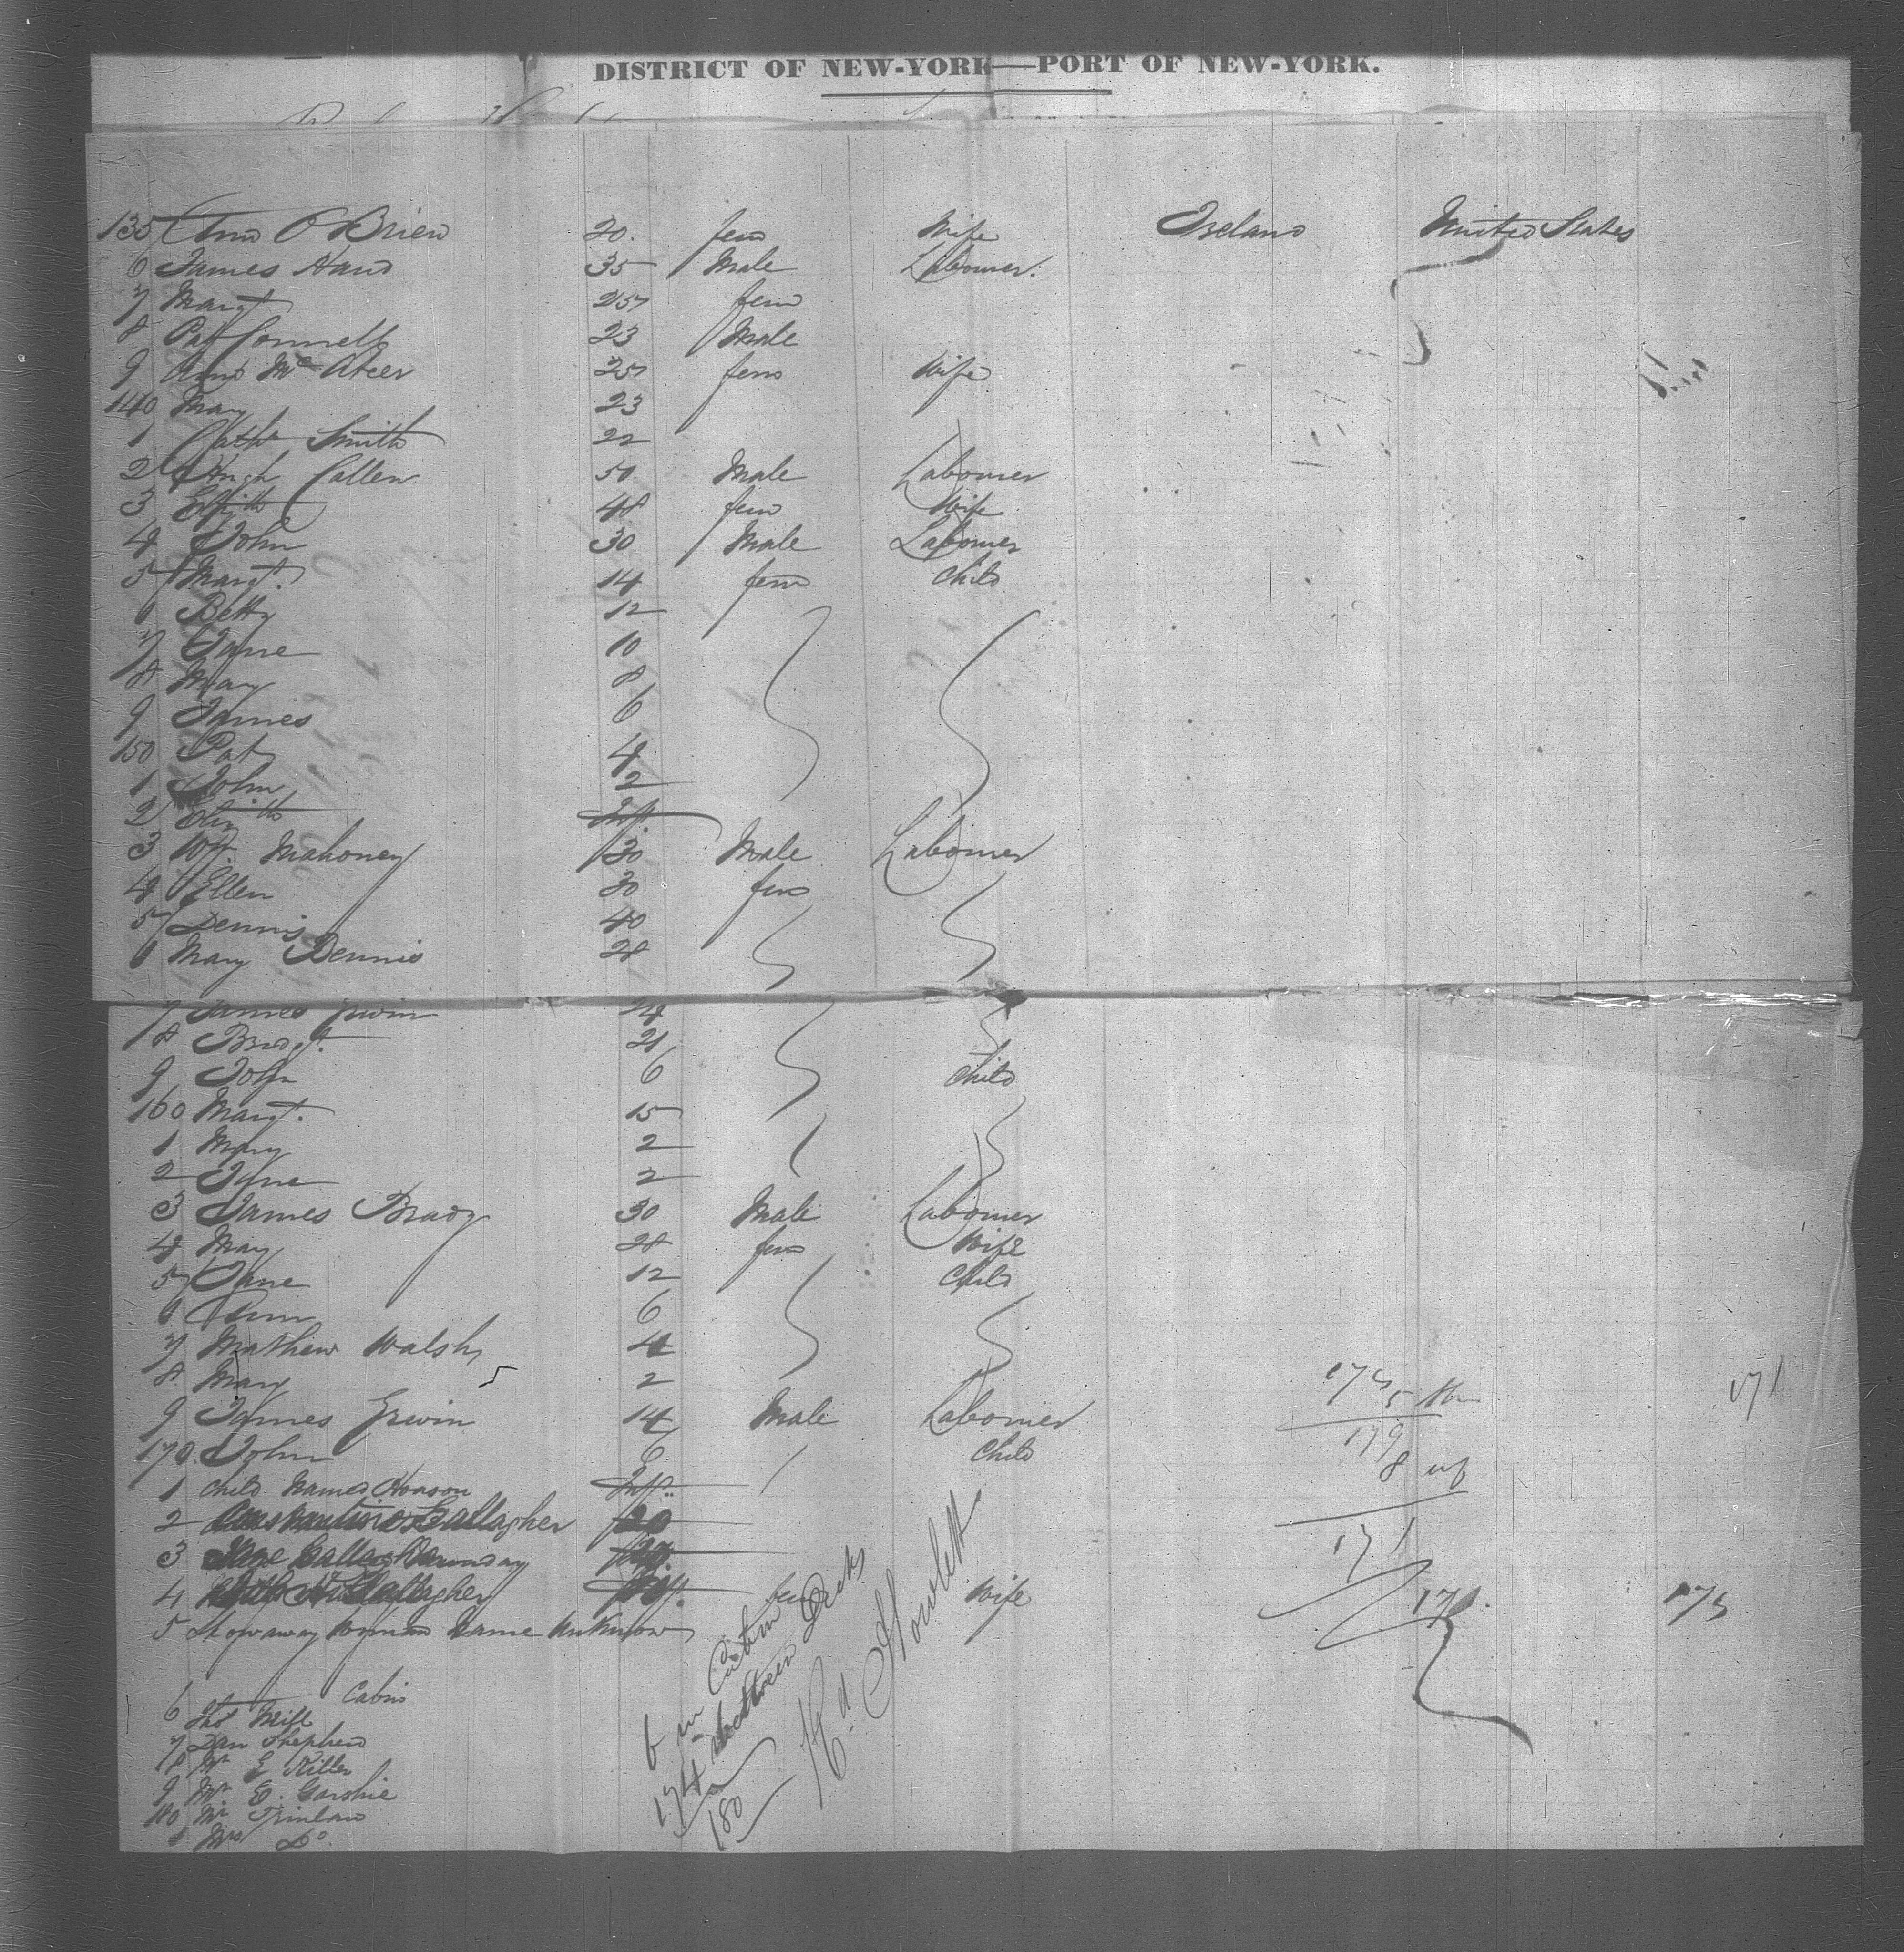 DISTRICT OF NEW-YORK—PORT OF NEW-YORK.
135 Ann O'Brien 20. fem Wife Ireland United States
6 James Hand 35 Male Labourer.
7 Margt 25 fem
8 Pat Connell 23 Male
9 Ann McAteer 25 fem Wife
140 Mary 23
1 Cathe Smith 22
2 Hugh Callen 50 Male Labourer
3 Elizth 48 fem Wife
4 John 30 Male Labourer
5 Margt. 14 fem Child
6 Betty 12
7 Jane 10
8 Mary 8
9 James 6
150 Pat 4
1 John 2
2 Elizth Inft.
3 Wm. Mahoney 30 Male Labourer
4 Ellen 30 fem
5 Dennis 40
6 Mary Dennis 28
7 James Erwin 24
8 Bridgt. 21
9 John 6 Child
160 Margt. 15
1 Mary 2
2 Jane 2
3 James Brady 30 Male Labourer
4 Mary 28 fem Wife
5 Jane 12 Child
6 Ann 6
7 Mathew Walsh 4
8 Mary 2
9 James Erwin 14 Male Labourer
170 John 6 Child
1 Child Named Hoason Inft.
2 Gallagher 20
3
4 Gallagher Inft. fem Wife
5 Stowaway Woman Name Unknown
Cabin
6 Thos
7 Dan Shepherd
8 Mr E Ritter
9 Mr. E.
180 Mr Finlaw
1 Mrs Do.
6 in Cabin
174 between Decks
180
Howlett
175
179
8
171
171
171
175